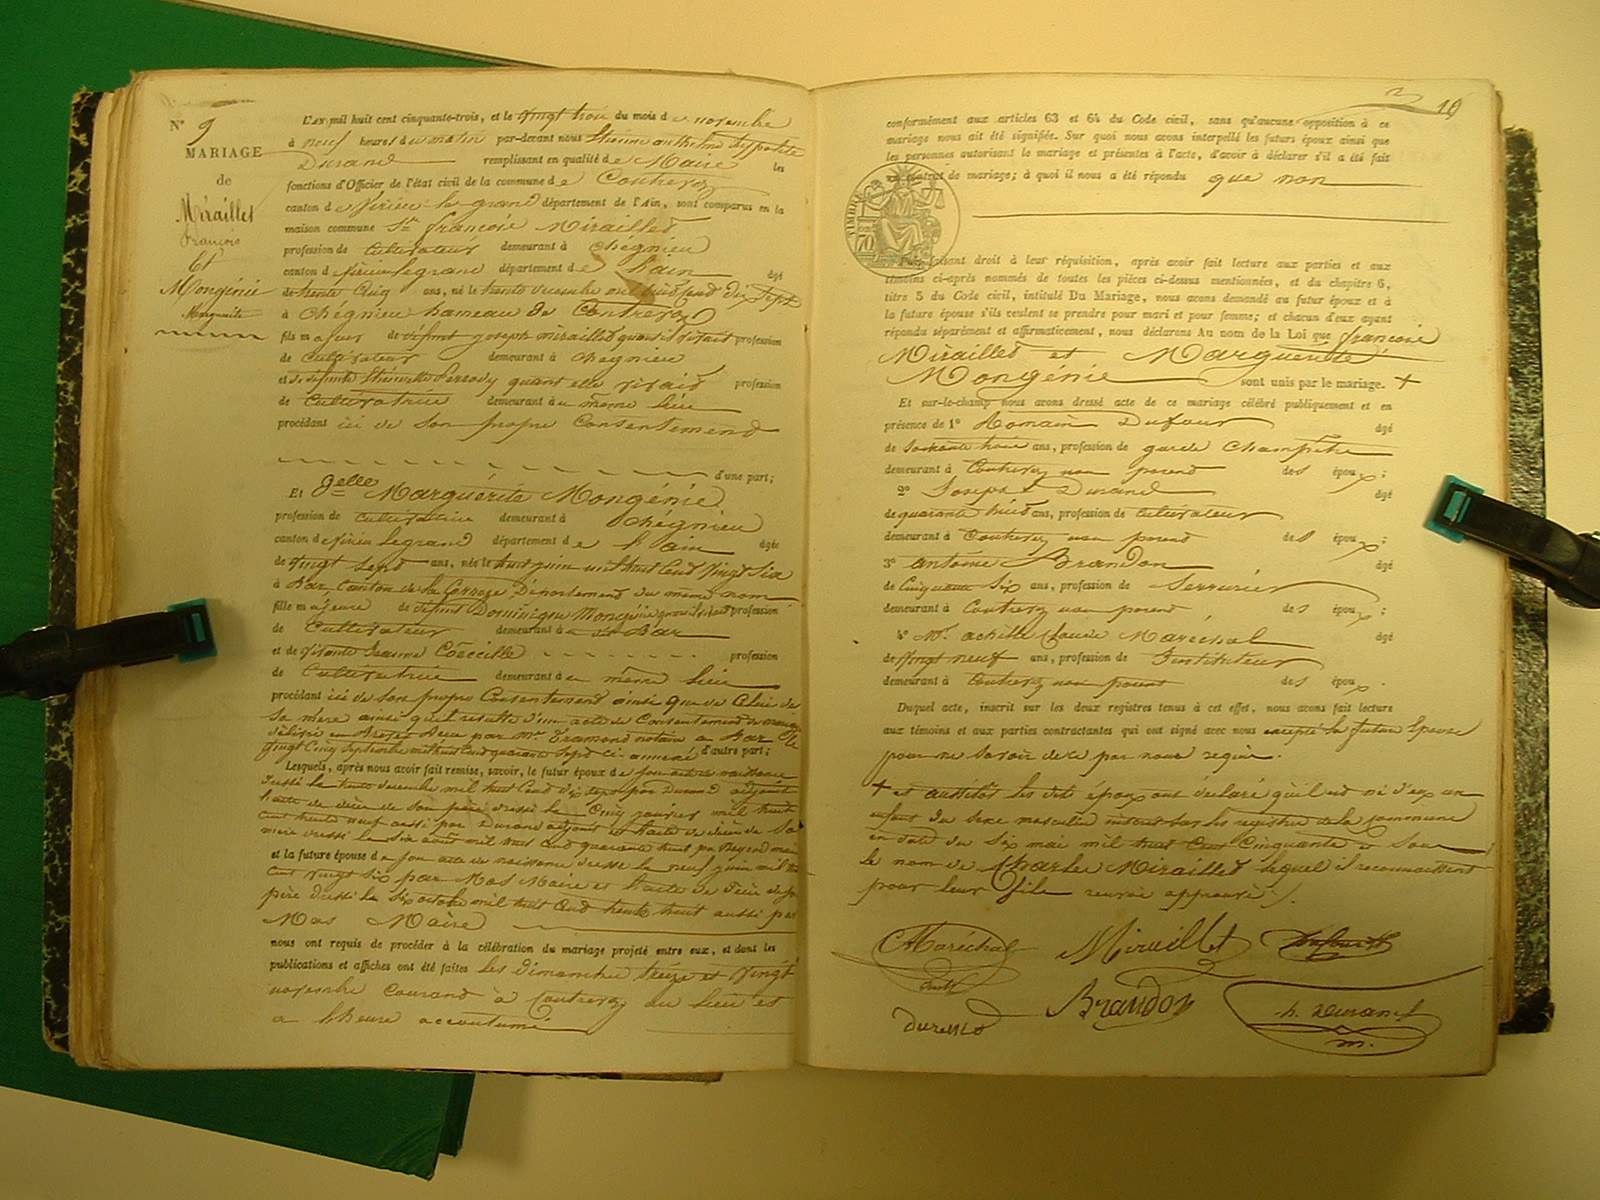 N° 9
MARIAGE
de
Miraillet
françois
Et
Mongénie
Marguerite
L'AN mil huit cent cinquante-trois, et le vingt trois du mois de novembre
à neuf heures du matin par-devant nous Etienne anthelme hyppolite
Durand remplissant en qualité de Maire les
fonctions d'Officier de l'état civil de la commune de Contrevoz
canton de Virieu-le-grand département de l'Ain, sont comparus en la
maison commune Sr. françois Miraillet
profession de cultivateur demeurant à Chégnieu
canton de Virieu legrand département de L'ain âgé
de trente cinq ans, né le trente decembre mil huit cent dix sept
à Chégnieu hameau de Contrevoz
fils majeur de défunt joseph miraillet quand il vivait profession
de cultivateur demeurant à Chégnieu
et de défunte Etiennette Perrody quant elle vivait profession
de Cultivatrice demeurant au même lieu
procédant ici de son propre Consentement
d'une part;
Et Delle Marguerite Mongénie
profession de cultivatrice demeurant à Chégnieu
canton de Virieu legrand département de L'ain âgée
de vingt sept ans, née le huit juin mil huit Cent Vingt Six
à Bar, Canton de la Correze Département du même nom
fille majeure de défunt Dominique Mongénie quand il vivait profession
de Cultivateur demeurant à Bar
et de vivante Jeanne Coëcille profession
de Cultivatrice demeurant au même lieu
procédant ici de son propre Consentement ainsi que de Celui de
Sa mère ainsi qu'il resulte d'un acte de Consentement de mariage
délivré en Brevet Reçu par Me. Tramond notaire a Bar le
Vingt Cinq Septembre mil huit Cent quarante Sept ci-annexé d'autre part;
Lesquels, après nous avoir fait remise, savoir, le futur époux de son acte de naissance
Dressé le trente decembre mil huit Cent dix sept par Durand adjoint
l'acte de décès de son père dressé le Cinq janvier mil huit
Cent trente neuf aussi par Durand adjoint et l'acte de décès de Sa
mère dressé le Six août mil huit Cent quarante huit par
et la future épouse de son acte de naissance dressé le neuf juin mil huit
Cent vingt Six par Mas Maire et l'acte de décès de son
père dressé le Six octobre mil huit Cent trente huit aussi par
Mas Maire
nous ont requis de procéder à la célébration du mariage projeté entre eux, et dont les
publications et affiches ont été faites les Dimanches treize et Vingt
novembre Courant à Contrevoz au lieu et
a l'heure accoutumé
10
conformément aux articles 63 et 64 du Code civil, sans qu'aucune opposition à ce
mariage nous ait été signifiée. Sur quoi nous avons interpellé les futurs époux ainsi que
les personnes autorisant le mariage et présentes à l'acte, d'avoir à déclarer s'il a été fait
un contrat de mariage; à quoi il nous a été répondu que non
TIMBRE
70
Faisant droit à leur réquisition, après avoir fait lecture aux parties et aux
témoins ci-après nommés de toutes les pièces ci-dessus mentionnées, et du chapitre 6,
titre 5 du Code civil, intitulé Du Mariage, nous avons demandé au futur époux et à
la future épouse s'ils veulent se prendre pour mari et pour femme; et chacun d'eux ayant
répondu séparément et affirmativement, nous déclarons Au nom de la Loi que françois
Miraillet et Marguerite
Mongénie sont unis par le mariage. +
Et sur-le-champ nous avons dressé acte de ce mariage célébré publiquement et en
présence de 1° Romain Dufour âgé
de soixante trois ans, profession de garde Champêtre
demeurant à Contrevoz non parent des époux;
2° Joseph Durand âgé
de quarante huit ans, profession de cultivateur
demeurant à Contrevoz non parent des époux;
3° antoine Brandon âgé
de Cinquante Six ans, profession de Serrurier
demeurant à Contrevoz non parent des époux;
4° Mr. achille Claude Maréchal âgé
de Vingt neuf ans, profession de Instituteur
demeurant à Contrevoz non parent des époux.
Duquel acte, inscrit sur les deux registres tenus à cet effet, nous avons fait lecture
aux témoins et aux parties contractantes qui ont signé avec nous excepté la future Epouse
pour ne savoir de ce par nous requise.
+ et aussitôt les dits époux ont declaré qu'il est né d'eux un
enfant du Sexe masculin inscrit Sur les registres de la Commune
en date du Six mai mil huit Cent Cinquante et Sous
le nom de Charles Miraillet lequel il reconnaissent
pour leur fils renvoi approuvé ./.
Maréchal
Miraillet
Dufour
Durand
Brandon
h. Durand
m.